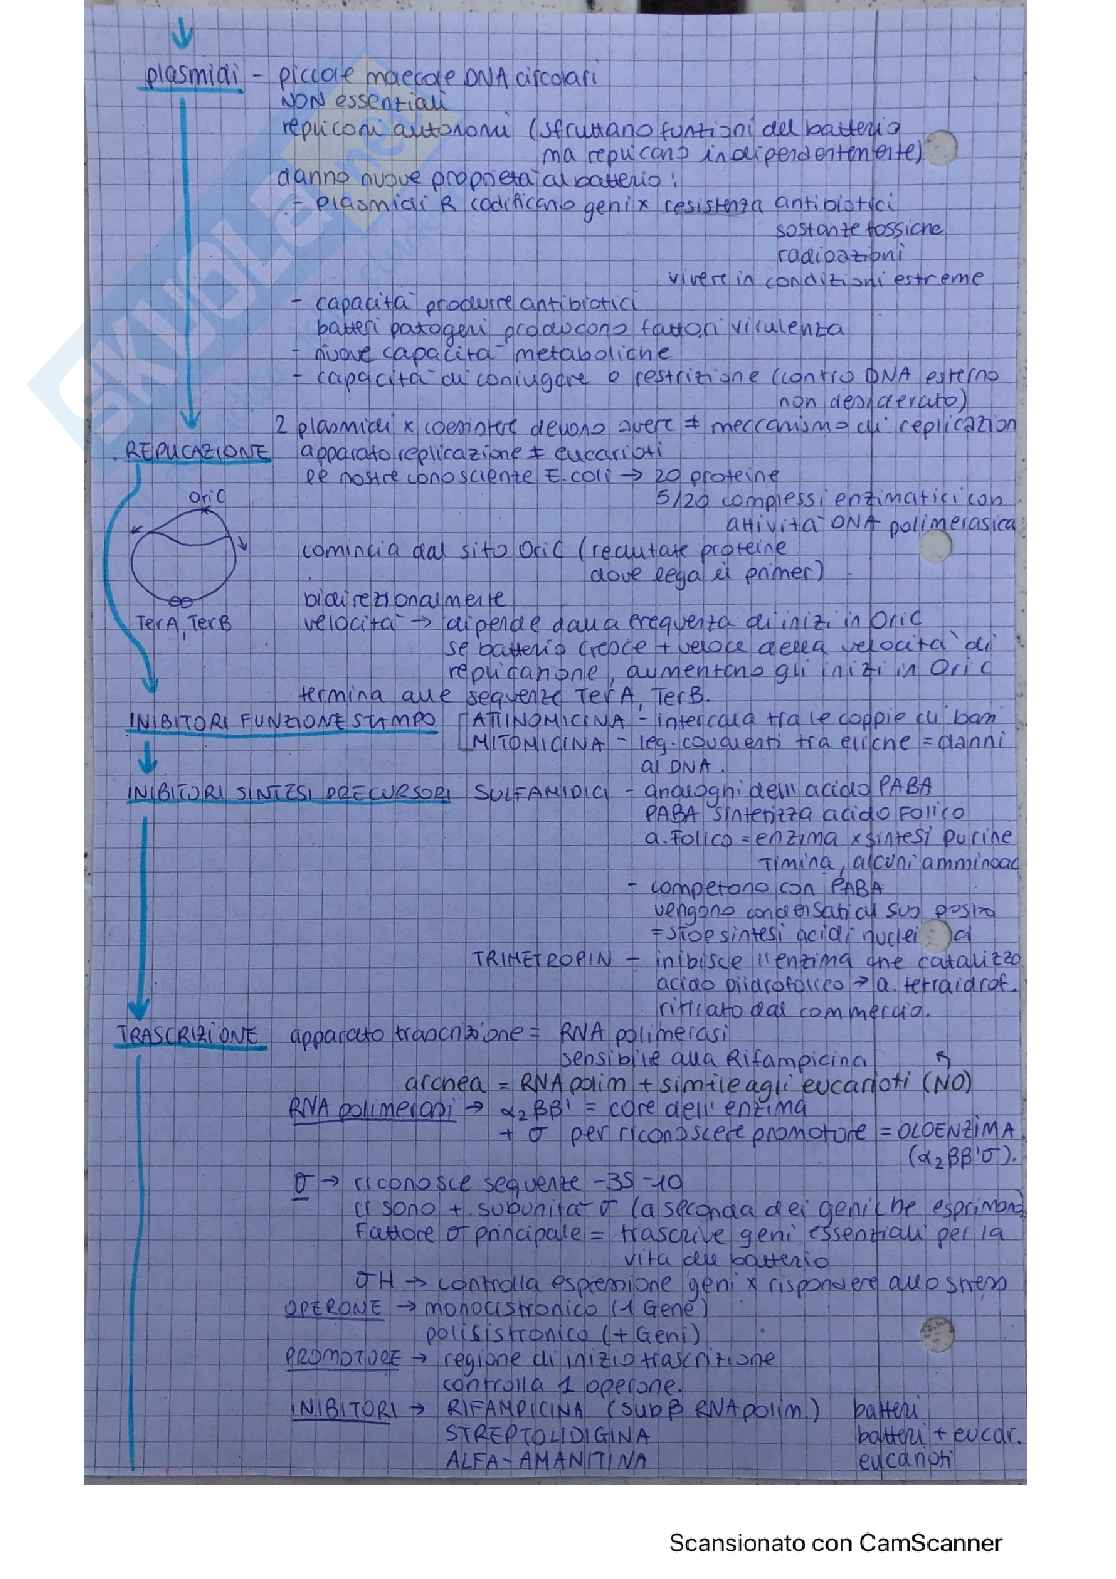 plasmidi - piccole molecole DNA circolari
NON essenziali
repliconi autonomi (sfruttano funzioni del batterio
ma replicano indipendentemente)
danno nuove proprietà al batterio:
- plasmidi R codificano geni x resistenza antibiotici
sostanze tossiche
radiazioni
vivere in condizioni estreme
- capacità produrre antibiotici
batteri patogeni producono fattori virulenza
- nuove capacità metaboliche
- capacità di coniugare o restrizione (contro DNA esterno
non desiderato)
2 plasmidi x coesistere devono avere ≠ meccanismo di replicazion
REPLICAZIONE apparato replicazione ≠ eucarioti
le nostre conoscienze E. coli → 20 proteine
5/20 complessi enzimatici con
attività DNA polimerasica
OriC
comincia dal sito OriC (reclutate proteine
dove lega il primer)
bidirezionalmente
TerA, TerB
velocità → dipende dalla frequenza di inizi in OriC
se batterio cresce + veloce della velocità di
replicazione, aumentano gli inizi in OriC
termina alle sequenze TerA, TerB.
INIBITORI FUNZIONE STAMPO [ATTINOMICINA - intercala tra le coppie di basi
MITOMICINA - leg. covalenti tra eliche = danni
al DNA.
INIBITORI SINTESI PRECURSORI SULFAMIDICI - analoghi dell'acido PABA
PABA sintetizza acido folico
a. folico = enzima x sintesi purine
Timina, alcuni amminoac
- competono con PABA
vengono condensati al suo posto
= stop sintesi acidi nuclei ci
TRIMETROPIN - inibisce l'enzima che catalizza
acido diidrofolico → a. tetraidrof.
ritirato dal commercio.
TRASCRIZIONE apparato trascrizione = RNA polimerasi
sensibile alla Rifampicina
archea = RNA polim + simile agli eucarioti (NO)
RNA polimerasi → α₂ββ' = core dell'enzima
+ σ per riconoscere promotore = OLOENZIMA
(α₂ββ'σ).
σ → riconosce sequenze -35 -10
ci sono + subunità σ (a seconda dei geni che esprimono)
Fattore σ principale = trascrive geni essenziali per la
vita del batterio
σH → controlla espressione geni x rispondere allo stress
OPERONE → monocistronico (1 Gene)
policistronico (+ Geni)
PROMOTORE → regione di inizio trascrizione
controlla 1 operone.
INIBITORI → RIFAMPICINA (sub β RNA polim.) batteri
STREPTOLIDIGINA batteri + eucar.
ALFA-AMANITINA eucarioti
SKUOLA.net
Scansionato con CamScanner